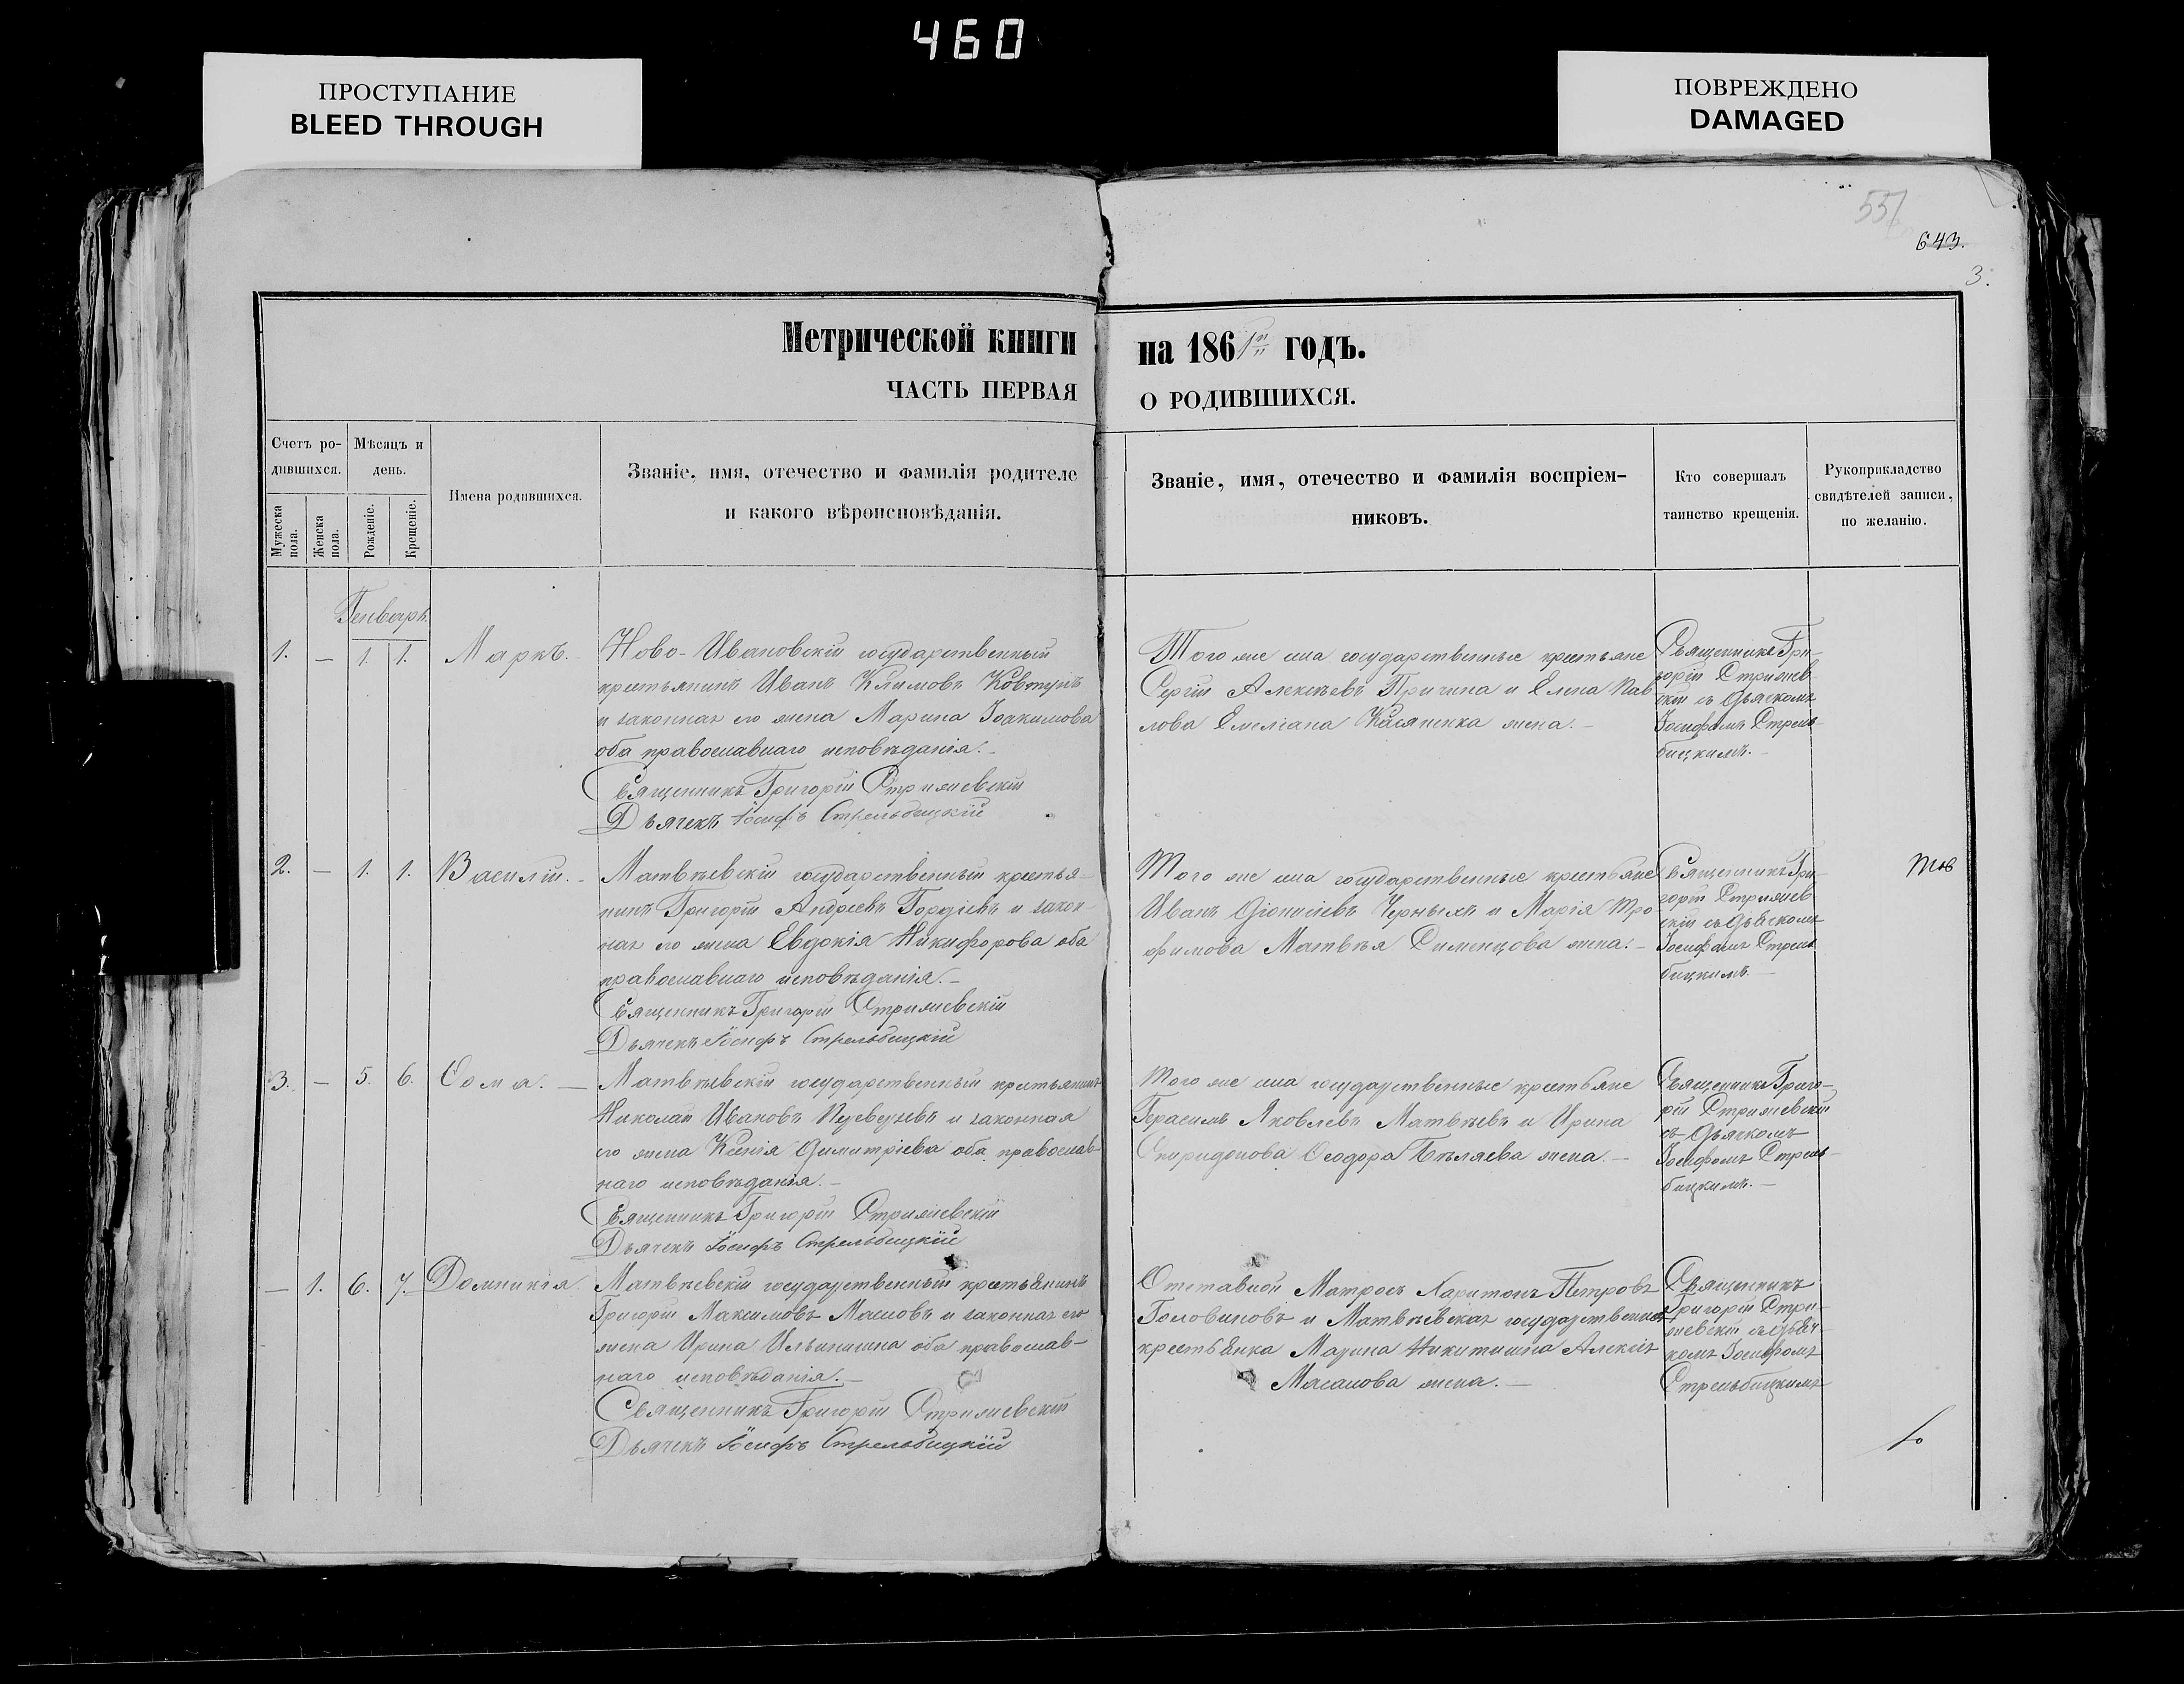 460
ПРОСТУПАНИЕ
BLEED THROUGH
ПОВРЕЖДЕНО
DAMAGED
643.
3.
Метрической книги на 1861 годъ.
ЧАСТЬ ПЕРВАЯ О РОДИВШИХСЯ.
Счетъ ро-
дившихся.
Мужеска пола.
Женска пола.
Мѣсяцъ и
день.
Рожденіе.
Крещеніе.
Имена родившихся.
Званіе, имя, отечество и фамилія родителе
и какого вѣроисповѣданія.
Званіе, имя, отечество и фамилія воспріем-
никовъ.
Кто совершалъ
таинство крещенія.
Рукоприкладство
свидѣтелей записи,
по желанію.
Генварь
1. — 1. 1. Маркъ. —
Ново-Ивановскій государственный
крестьянинъ Иванъ Климовъ Ковтунъ
и законная его жена Марина Іоакимова
оба православнаго исповѣданія. —
Священникъ Григорій Стрижевскій
Дьячекъ Іосифъ Стрельбицкій
Того же села государственные крестьяне
Сергій Алексѣевъ Причина и Елена Пав
лова Емеліана Касяненка жена. —
Священникъ Гри-
горій Стрижев
скій съ дьячкомъ
Іосифомъ Стрель-
бицкимъ. —
2. — 1. 1. Василій. —
Матвѣевскій государственный крестья-
нинъ Григорій Андреевъ Гордіевъ и закон-
ная его жена Евдокія Никифорова оба
православнаго исповѣданія. —
Священникъ Григорій Стрижевскій
Дьячекъ Іосифъ Стрельбицкій
Того же села государственные крестьяне
Иванъ Діонисіевъ Черныхъ и Марія Тро
фимова Матвѣя Сименцова жена. —
Священникъ Гри-
горій Стрижев
скій съ дьячкомъ
Іосифомъ Стрель
бицкимъ. —
3. — 5. 6. Ѳома. —
Матвѣевскій государственный крестьянинъ
Николай Ивановъ и законная
его жена Ксенія Димитріева оба православ-
наго исповѣданія. —
Священникъ Григорій Стрижевскій
Дьячекъ Іосифъ Стрельбицкій
Того же села государственные крестьяне
Герасимъ Яковлевъ Матвѣевъ и Ирина
Спиридонова Ѳеодора Бѣляева жена. —
Священникъ Григо-
рій Стрижевскій
съ дьячкомъ
Іосифомъ Стрель-
бицкимъ. —
— 1. 6. 7. Домникія.
Матвѣевскій государственный крестьянинъ
Григорій Максимовъ Масловъ и законная его
жена Ирина Ильинишна оба православ-
наго исповѣданія. —
Священникъ Григорій Стрижевскій
Дьячекъ Іосифъ Стрельбицкій
Отставной Матросъ Харитонъ Петровъ
Головиновъ и Матвѣевская государственная
крестьянка Марина Никитишна Алексія
Масалова жена. —
Священникъ
Григорій Стри-
жевскій съ дьяч-
комъ Іосифомъ
Стрельбицкимъ